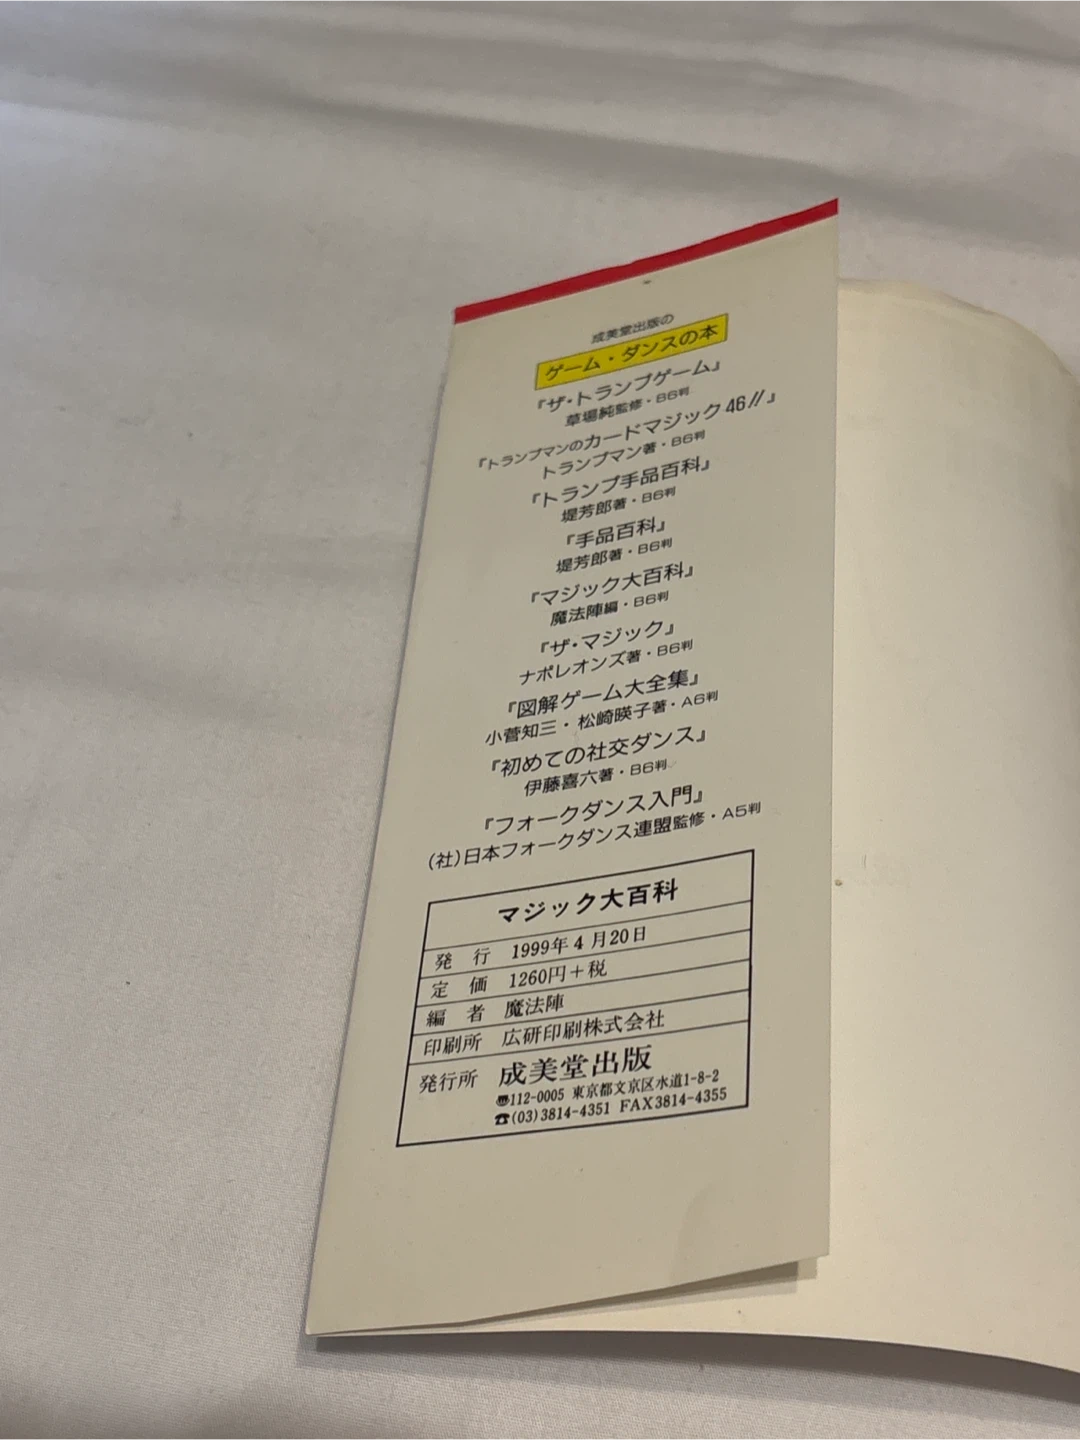 成美堂出版の
ゲーム・ダンスの本
『ザ・トランプゲーム』
草場純監修・B6判
『トランプマンのカードマジック46//』
トランプマン著・B6判
『トランプ手品百科』
堤芳郎著・B6判
『手品百科』
堤芳郎著・B6判
『マジック大百科』
魔法陣編・B6判
『ザ・マジック』
ナポレオンズ著・B6判
『図解ゲーム大全集』
小菅知三・松崎暎子著・A6判
『初めての社交ダンス』
伊藤喜六著・B6判
『フォークダンス入門』
(社)日本フォークダンス連盟監修・A5判
マジック大百科
発行 1999年4月20日
定価 1260円+税
編者 魔法陣
印刷所 広研印刷株式会社
発行所 成美堂出版
〠112-0005 東京都文京区水道1-8-2
☎(03)3814-4351 FAX3814-4355